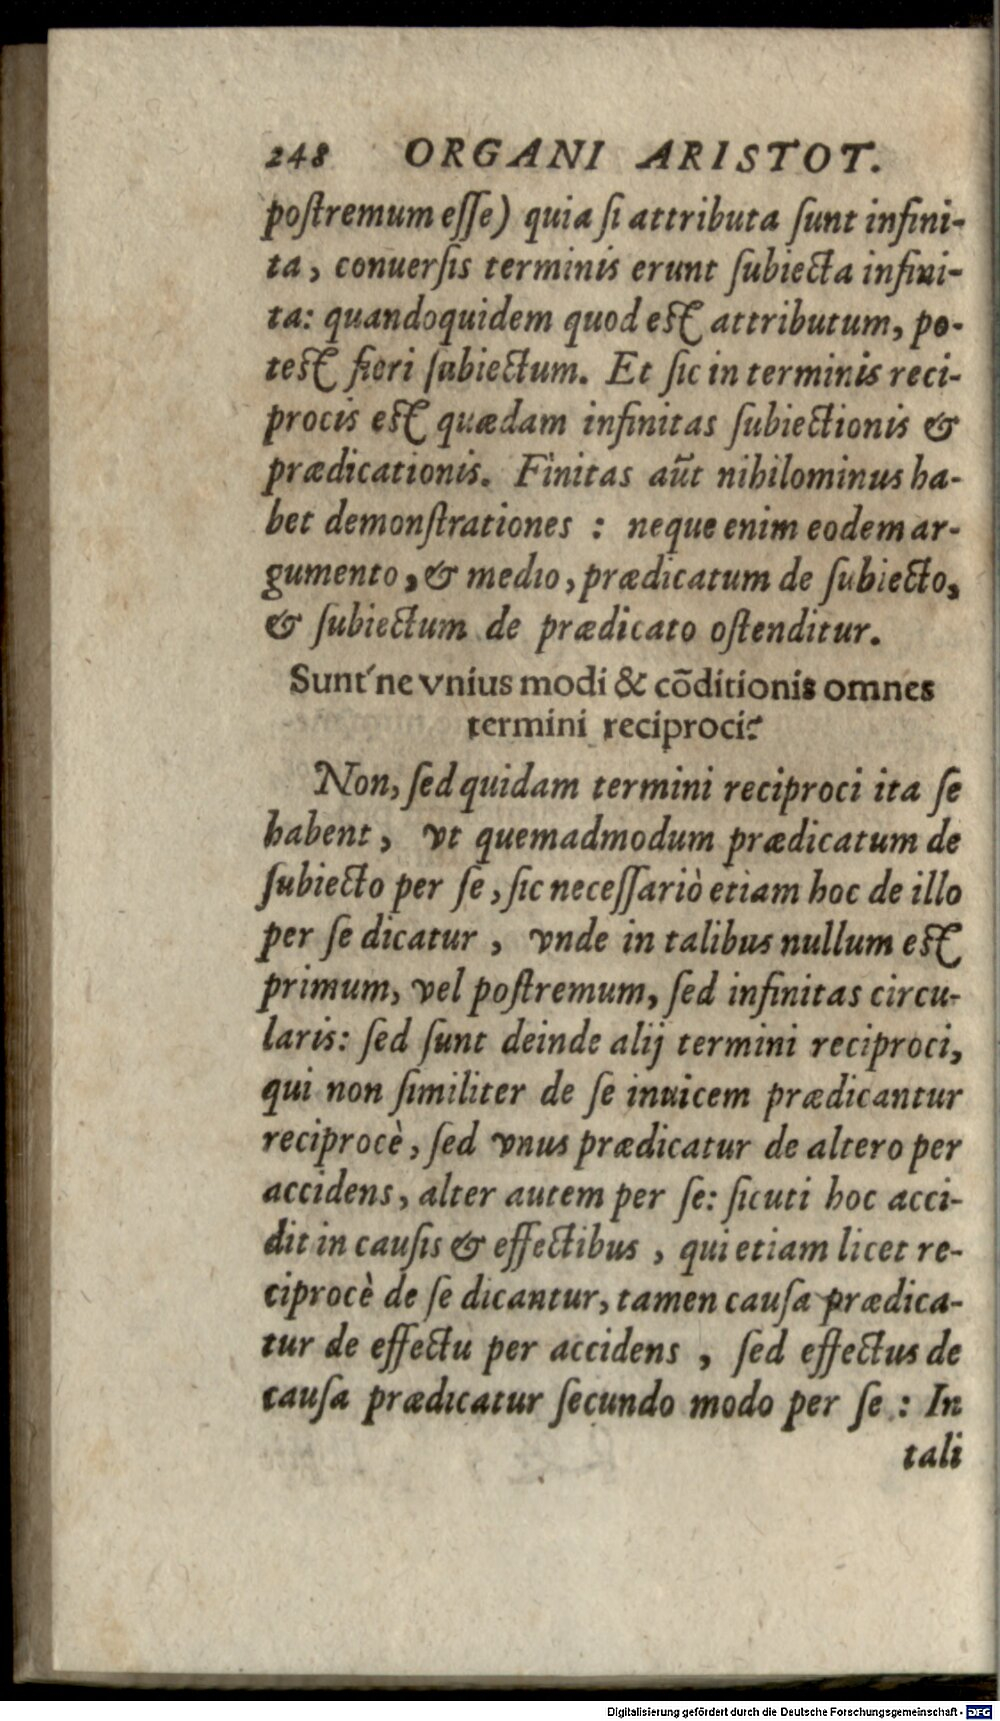 248 ORGANI ARISTOT.
poſtremum eſſe) quia ſi attributa ſunt infini-
ta, conuerſis terminis erunt ſubiecta infini-
ta: quandoquidem quod eſt attributum, po-
teſt fieri ſubiectum. Et ſic in terminis reci-
procis eſt quædam infinitas ſubiectionis &
prædicationis. Finitas aũt nihilominus ha-
bet demonſtrationes : neque enim eodem ar-
gumento, & medio, prædicatum de ſubiecto,
& ſubiectum de prædicato oſtenditur.
Sunt'ne vnius modi & cōditionis omnes
termini reciproci?
Non, ſed quidam termini reciproci ita ſe
habent, vt quemadmodum prædicatum de
ſubiecto per ſe, ſic neceſſariò etiam hoc de illo
per ſe dicatur, vnde in talibus nullum eſt
primum, vel poſtremum, ſed infinitas circu-
laris: ſed ſunt deinde alij termini reciproci,
qui non ſimiliter de ſe inuicem prædicantur
reciprocè, ſed vnus prædicatur de altero per
accidens, alter autem per ſe: ſicuti hoc acci-
dit in cauſis & effectibus, qui etiam licet re-
ciprocè de ſe dicantur, tamen cauſa prædica-
tur de effectu per accidens, ſed effectus de
cauſa prædicatur ſecundo modo per ſe : In
tali
Digitalisierung gefördert durch die Deutsche Forschungsgemeinschaft - DFG